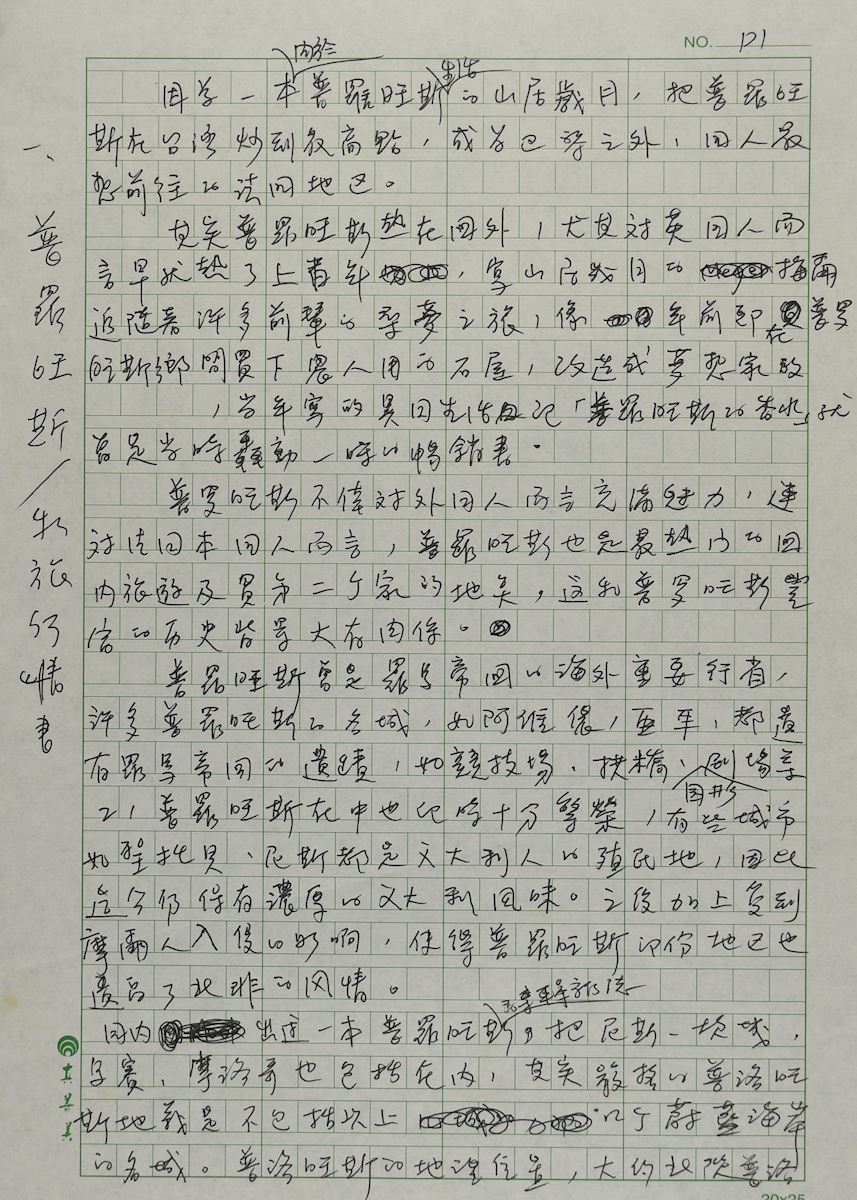 NO. 121
因為一本關於普羅旺斯生活的山居歲月，把普羅旺
斯在台灣炒到最高點，成為巴黎之外，國人最
想前往的法國地區。
其實普羅旺斯熱在國外，尤其對英國人而
言早就熱了上百年，寫山居歲月的梅爾
追隨著許多前輩的尋夢之旅，像年前即在普罗
旺斯鄉間買下農人用的石屋，改造成夢想家
，當年寫的異國生活日記「普羅旺斯的」就
曾是當時轟動一時的暢銷書。
普罗旺斯不僅對外国人而言充滿魅力，連
对法国本国人而言，普羅旺斯也是最熱門的国
内旅遊及買第二个家的地点，這和普罗旺斯豐
富的历史背景大有関係。
普羅旺斯曾是羅马帝国的海外重要行省，
許多普羅旺斯的名城，如阿維儂，亞耳，都遺
有羅马帝国的遺蹟，如競技場、拱橋、圓形劇場等
等，普羅旺斯在中世纪時十分繁榮，有些城市
如聖拖貝、尼斯都是义大利人的殖民地，因此
迄今仍保有濃厚的义大利風味。之後加上受到
摩爾人入侵的影响，使得普羅旺斯部份地区也
遺留了北非的风情。
国内出过一本普羅旺斯，把尼斯、坎城，
、摩洛哥也包括在内，其实嚴格的普洛旺
斯地域是不包括以上几个蔚藍海岸
的名城。普洛旺斯的地理位置，大約北從普洛
一、普羅旺斯／私旅行情書
20x25